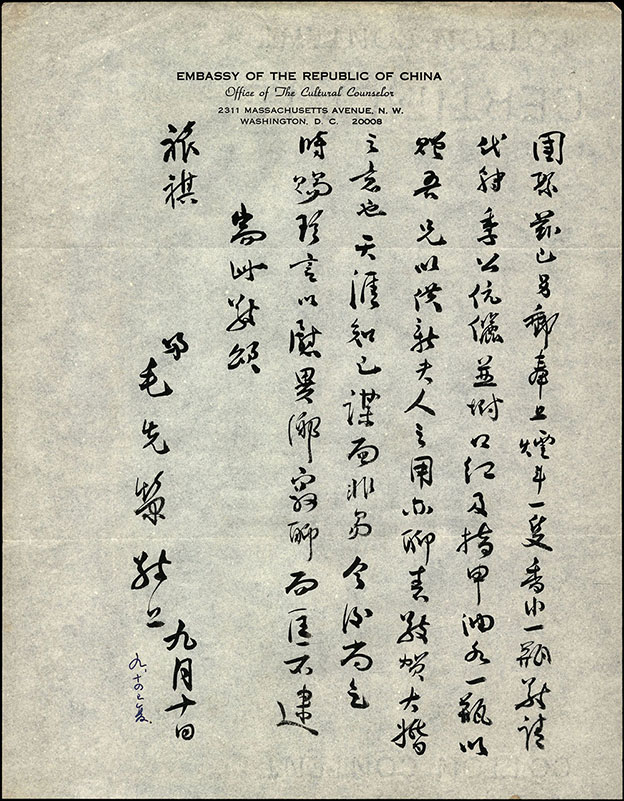 EMBASSY OF THE REPUBLIC OF CHINA
Office of The Cultural Counselor
2311 MASSACHUSETTS AVENUE, N. W.
WASHINGTON, D. C. 20008
團聚茲已另郵奉上煙斗一隻香水一瓶敬請
代 季公伉儷並附口紅及指甲油各一瓶以
贈吾 兄以供新夫人之用亦聊表敬賀大婚
之意也天涯知己謀面非易今後尚乞
時賜珍言以慰異鄉寂聊而匡不逮
耑此敬頌
旅祺
弟毛先榮敬上
九月十日
九.十四已复.